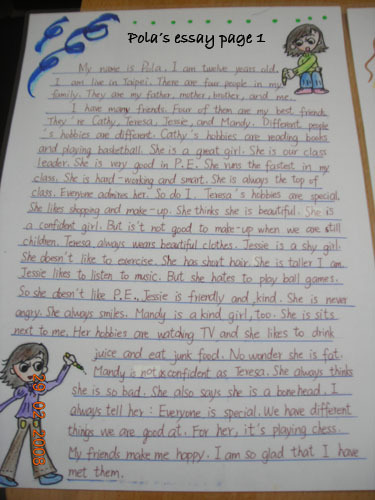 Pola's essay page 1
My name is Pola. I am twelve years old.
I am live in Taipei. There are four people in my
family. They are my father, mother, brother, and me.
I have many friends. Four of them are my best friends.
They're Cathy, Teresa, Jessie, and Mandy. Different people
's hobbies are different. Cathy's hobbies are reading books
and playing basketball. She is a great girl. She is our class
leader. She is very good in P.E. She runs the fastest in my
class. She is hard-working and smart. She is always the top of
class. Everyone admires her. So do I. Teresa's hobbies are special.
She likes shopping and make-up. She thinks she is beautiful. She is
a confident girl. But is't not good to make-up when we are still
children. Teresa always wears beautiful clothes. Jessie is a shy girl.
She doesn't like to exercise. She has short hair. She is taller I am.
Jessie likes to listen to music. But she hates to play ball games.
So she doen't like P.E.. Jessie is friendly and kind. She is never
angry. She always smiles. Mandy is a kind girl, too. She is sits
next to me. Her hobbies are watching TV and she likes to drink
juice and eat junk food. No wonder she is fat.
Mandy is not confident as Teresa. She always thinks
she is so bad. She also says she is a bonehead. I
always tell her: Everyone is special. We have different
things we are good at. For her, it's playing chess.
My friends make me happy. I am so glad that I have
met them.
29 02 2008